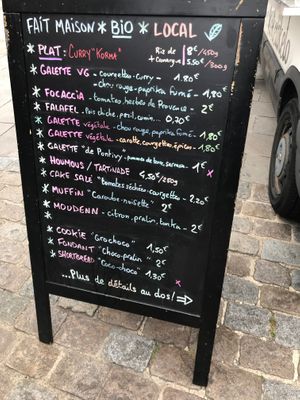 FAIT MAISON * BIO * LOCAL
* PLAT : CURRY "KORMA" Riz de Camargue + 8€/450g 5,50€/300g
* GALETTE VG - courgettes - curry - 1.80€
- chou rouge - paprika fumé - 1,80€
* FOCACCIA - tomates, herbes de Provence - 2€
* FALAFEL - Pois chiche, persil, cumin... 0,20€
* GALETTE végétale - chou rouge, paprika fumé - 1,80€
* GALETTE végétale - carotte, courgettes, épices - 1,80€
* GALETTE "de Pontivy" - pommes de terre, sarrasin - 1€
* HOUMOUS / TARTINADE 4,50€/250g
* CAKE SALÉ "tomates séchées - courgettes" 2.20€
* MUFFIN "Carotte - noisette" 2€
* MOUDENN - citron, pralin, tonka - 2€
* COOKIE "Grochoco" 1,50€
* FONDANT "Choco-pralin" 2€
* SHORTBREAD "Coco-choco" 1.30€
...Plus de détails au dos! ⇒